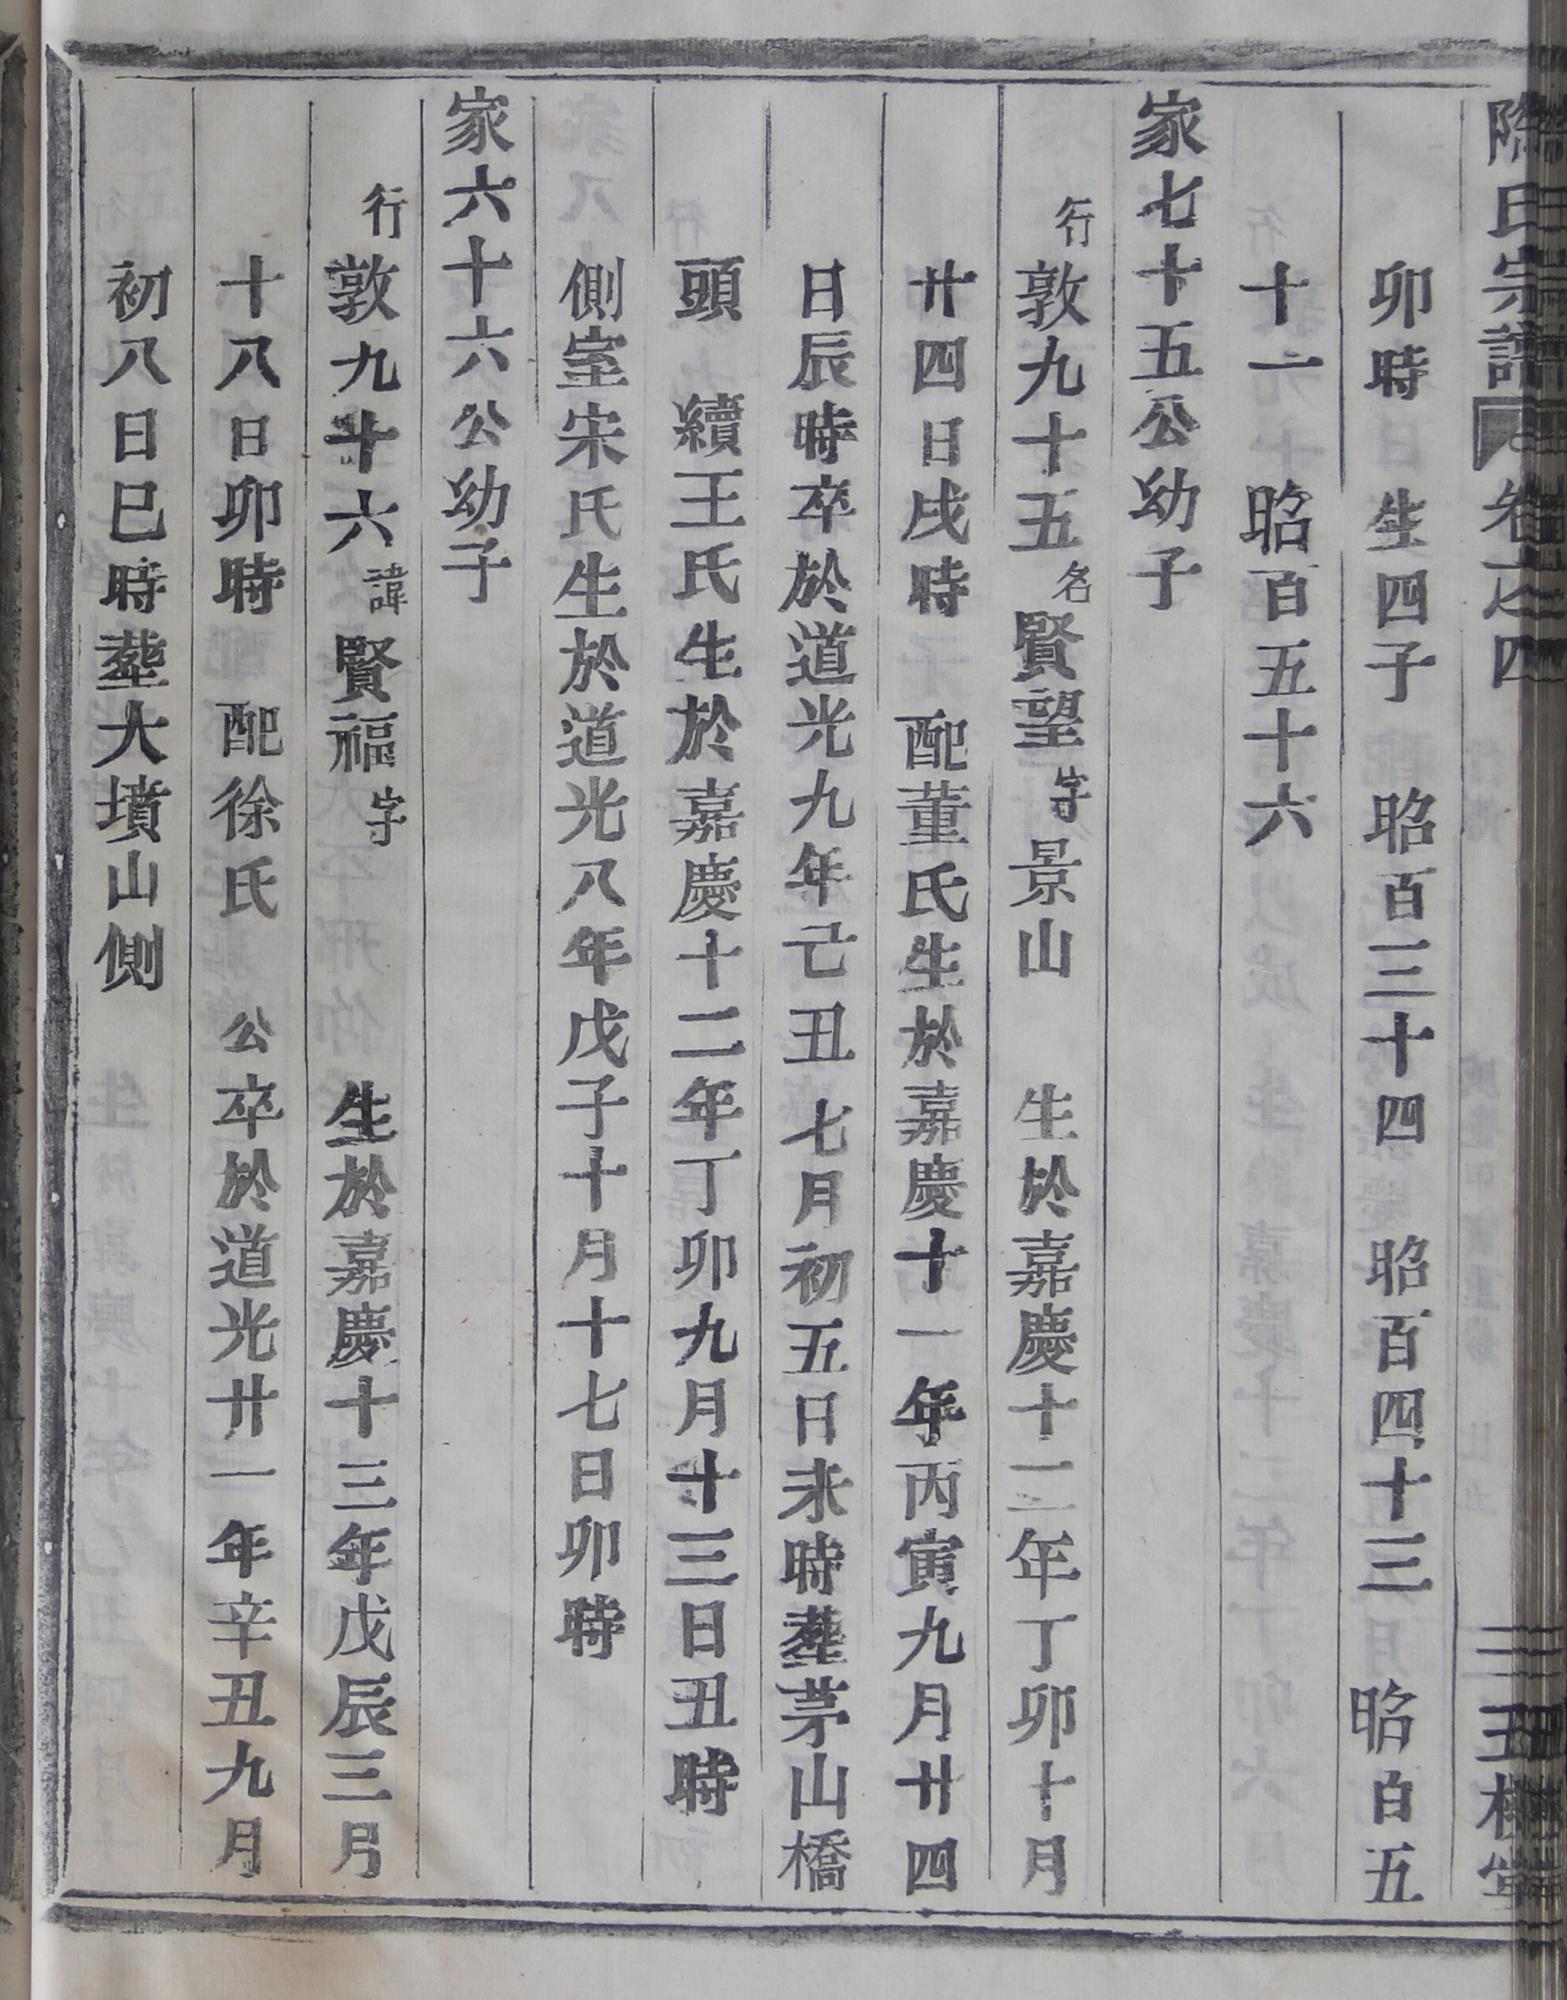 陶氏宗譜 卷之四
卯時 生四子 昭百三十四 昭百四十三 昭百五
十一 昭百五十六
家七十五公幼子
行敦九十五名賢望字景山 生於嘉慶十二年丁卯十月
廿四日戌時 配董氏生於嘉慶十一年丙寅九月廿四
日辰時卒於道光九年己丑七月初五日未時塟茅山橋
頭 續王氏生於嘉慶十二年丁卯九月十三日丑時
側室宋氏生於道光八年戊子十月十七日卯時
家六十六公幼子
行敦九十六諱賢福字 生於嘉慶十三年戊辰三月
十八日卯時 配徐氏 公卒於道光廿一年辛丑九月
初八日巳時塟大墳山側